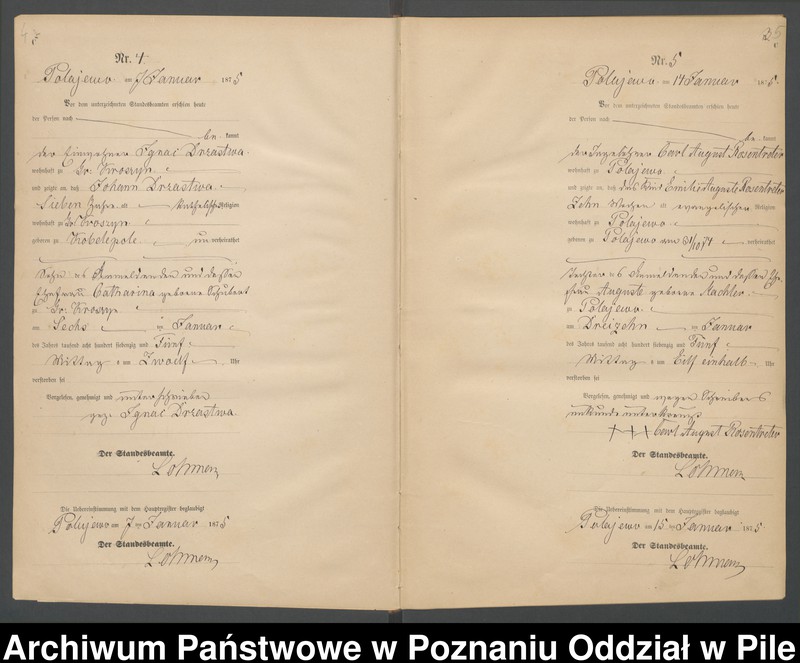 Nr. 4
Polajewo am 7 Januar 1875
Vor dem unterzeichneten Standesbeamten erschien heute
der Person nach
be kannt
der Einwohner Ignac Drzastwa
wohnhaft zu Gr. Kroszyn
und zeigte an, daß Johann Drzastwa
Sieben Jahre alt katholischer Religion
wohnhaft zu Gr. Kroszyn
geboren zu unverheirathet
Sohn des Anmeldenden und dessen
Ehefrau Catharina geborene Schubert
zu Gr. Kroszyn
am Sechs ten Januar
des Jahres tausend acht hundert siebenzig und Fünf
Mittag s um Zwoelf Uhr
verstorben sei
Vorgelesen, genehmigt und unterschrieben
gez. Ignac Drzastwa
Der Standesbeamte.
Die Uebereinstimmung mit dem Hauptregister beglaubigt
Polajewo am 7 ten Januar 1875
Der Standesbeamte.
35
Nr. 5
Polajewo am 14 Januar 1875.
Vor dem unterzeichneten Standesbeamten erschien heute
der Person nach
be kannt
der Carl August Rosentreter
wohnhaft zu Polajewo
und zeigte an, daß das Kind Emilie Auguste Rosentreter
Zehn Wochen alt evangelischer Religion
wohnhaft zu Polajewo
geboren zu Polajewo am 31/10 74 verheirathet
Tochter des Anmeldenden und dessen Ehe
frau Auguste geborene Machler
zu Polajewo
am Dreizehn ten Januar
des Jahres tausend acht hundert siebenzig und Fünf
Mittag s um Eilf einhalb Uhr
verstorben sei
Vorgelesen, genehmigt und wegen Schreibens
unkunde unterkreuzt
+++ Carl August Rosentreter
Der Standesbeamte.
Die Uebereinstimmung mit dem Hauptregister beglaubigt
Polajewo am 15 ten Januar 1875
Der Standesbeamte.
Archiwum Państwowe w Poznaniu Oddział w Pile